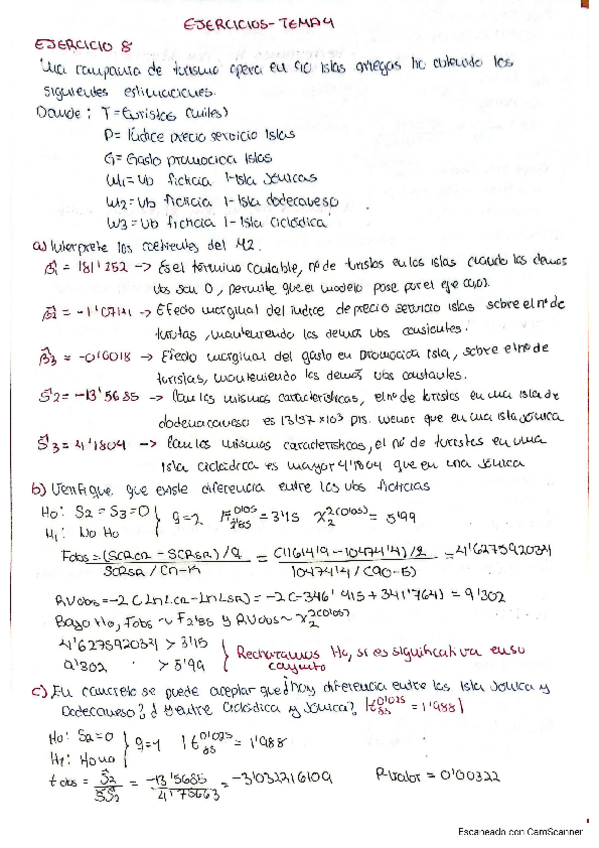 EJERCICIOS-TEMA 4
EJERCICIO 8
Una compañia de turismo opera en 90 islas griegas ha obtenido los
siguientes estimaciones.
Donde: T=turistas (miles)
P= Índice precio servicio Islas
G= Gasto promocion Islas
W1= Vb ficticia 1-Isla Jónicas
W2= Vb ficticia 1-Isla dodecaneso
W3= Vb ficticia 1-Isla Ciclódica
a) Interprete los coeficientes del M2.
β̂1 = 181'252 -> Es el término constante, nº de turistas en las islas cuando los demas
vbs son 0, permite que el modelo pase por el eje (0,0).
β̂2 = -1'07141 -> Efecto marginal del indice de precio servicio islas sobre el nº de
turistas, manteniendo los demas vbs constantes.
β̂3 = -0'0018 -> Efecto marginal del gasto en promocion isla, sobre el nº de
turistas, manteniendo los demás vbs constantes.
Ŝ2 = -13'5685 -> Con las mismas características, el nº de turistas en una isla de
dodecanaveso es 13'57 x10³ prs. menor que en una isla Jónica
Ŝ3 = 4'1804 -> Con los mismos características, el nº de turistas en una
isla ciclódica es mayor 4'1804 que en una Jónica
b) Verifique que existe diferencia entre los vbs ficticias
H0: S2 = S3 = 0 } q=2 F 0'05 2'85 = 3'15 X 2(0'05) 2 = 5'99
H1: No H0
Fobs = (SCRCR - SCRSR) / q = (11614'9 - 10474'4) / 2 = 4'627592034
SCRSR / (n-K 10474'4 / (90-5)
RVobs = -2 (LnLCR - LnLSR) = -2(-346'415 + 341'764) = 9'302
Bajo H0, Fobs ~ F2'85 y RVobs ~ X 2(0'05) 2
4'627592034 > 3'15 } Rechazamos H0, si es significativa en su
9'302 > 5'99 conjunto
c) En concreto se puede aceptar que ¿hay diferencia entre los isla Jónica y
Dodecaneso? ¿Y entre Ciclódica y Jónica? |t 0'025 85 = 1'988|
H0: S2 = 0 } q=1 |t 0'025 85 = 1'988
H1: H0 no
t obs = Ŝ2 / ŜŜ2 = -13'5685 / 4'75663 = -3'032216109 P-valor = 0'00322
Escaneado con CamScanner